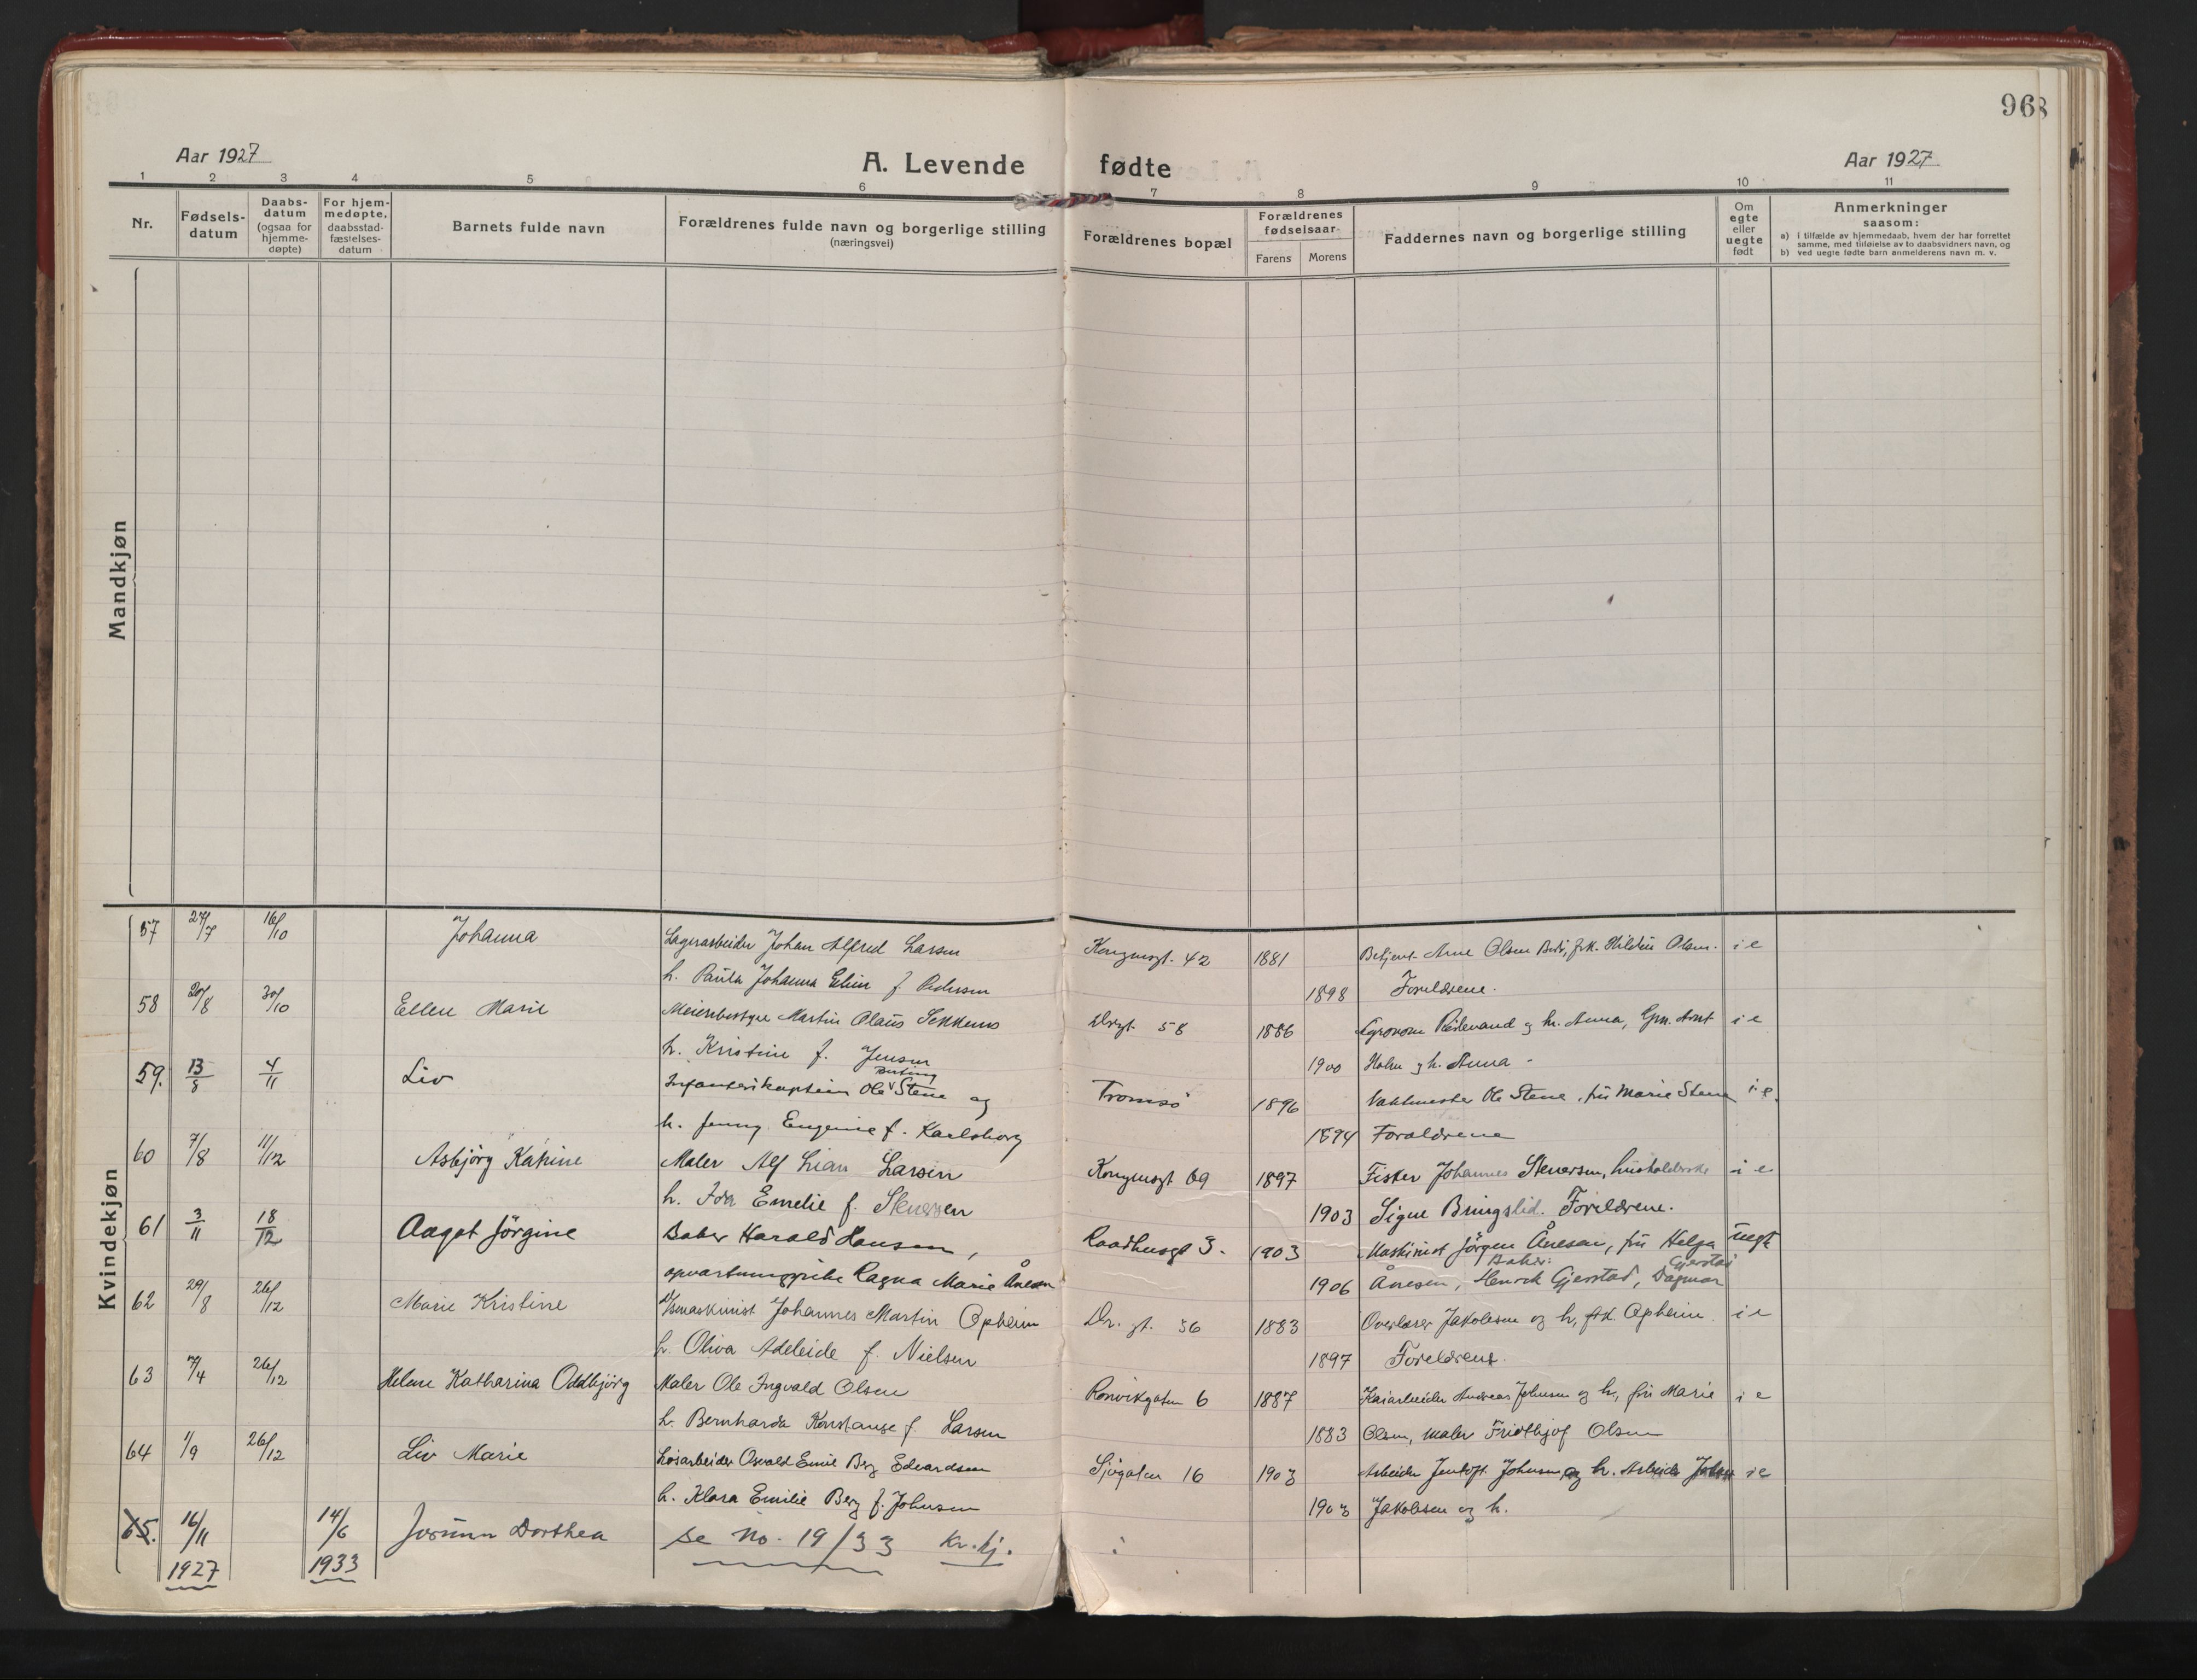 96
Aar 1927
A. Levende fødte
Aar 1927
1 2 3 4 5 6 7 8 9 10 11
Nr.
Fødselsdatum
Daabsdatum (ogsaa for hjemmedøpte)
For hjemmedøpte, daabsstadfæstelsesdatum
Barnets fulde navn
Forældrenes fulde navn og borgerlige stilling (næringsvei)
Forældrenes bopæl
Forældrenes fødselsaar
Farens Morens
Faddernes navn og borgerlige stilling
Om egte eller uegte født
Anmerkninger saasom:
a) i tilfælde av hjemmedaab, hvem der har forrettet samme, med tilføielse av to daabsvidners navn, og
b) ved uegte fødte barn anmelderens navn m. v.
Mandkjøn
Kvindekjøn
57 27/7 16/10 Johanna Lagerarbeider Johan Alfred Larsen Kongensgt. 42 1881 Betjent Arne Olsen Bodö, frk. Olsen. i e
h. Paula Johanna Elin f. Pedersen 1898 Foreldrene.
58 20/8 30/10 Ellen Marie Meieribestyrer Martin Olaus Drgt. 58 1886 Agronom og h. Anna, Arnt i e
h. Kristine f. Jensen 1900 Holm og h. Anna -
59. 13/8 4/11 Liv Infanterikaptein Ole Stene og Tromsö 1896 Vaktmester Ole Stene, fru Marie Stene i e.
h. Jenny Eugenie f. Karlsborg 1894 Foreldrene
60 7/8 11/12 Asbjörg Katrine Maler Alf Lian Larsen Kongensgt 69 1897 Fisker Johannes Stenersen, i e
h. Ida Emelie f. Stenersen 1903 Signe Bringslid. Foreldrene.
61 3/11 18/12 Aagot Jörgine Baker Harald Hansen, Raadhusgt 3. 1903 Maskinist Jörgen Ånesen, fru Helga uegte
opvartningspike Ragna Marie Ånesen 1906 Ånesen, Baker: Henrik Gjerstad, Dagmar Gjerstad
62 29/8 26/12 Marie Kristine Johannes Martin Opheim Dr. gt. 56 1883 Overlærer Jakobsen og h, frk. Opheim. i e
h. Oliva Adeleide f. Nielsen 1897 Foreldrene.
63 7/4 26/12 Helene Katharina Oddbjörg Maler Ole Ingvald Olsen Rönvikgaten 6 1887 Kaiarbeider Andreas Johnsen og h, fru Marie i e
h. Bernharda Konstanse f. Larsen 1883 Olsen, maler Fridthjof Olsen
64 1/9 26/12 Liv Marie Løsarbeider Osvald Emil Berg Edvardsen Sjögaten 16 1903 Arbeider Jentoft Johnsen og h. Arbeider Johan i e
h. Klara Emilie Berg f. Johnsen 1903 Jakobsen og h.
65. 16/11 1927 14/6 1933 Jorunn Dorthea se No. 19/33 Kr. kj.